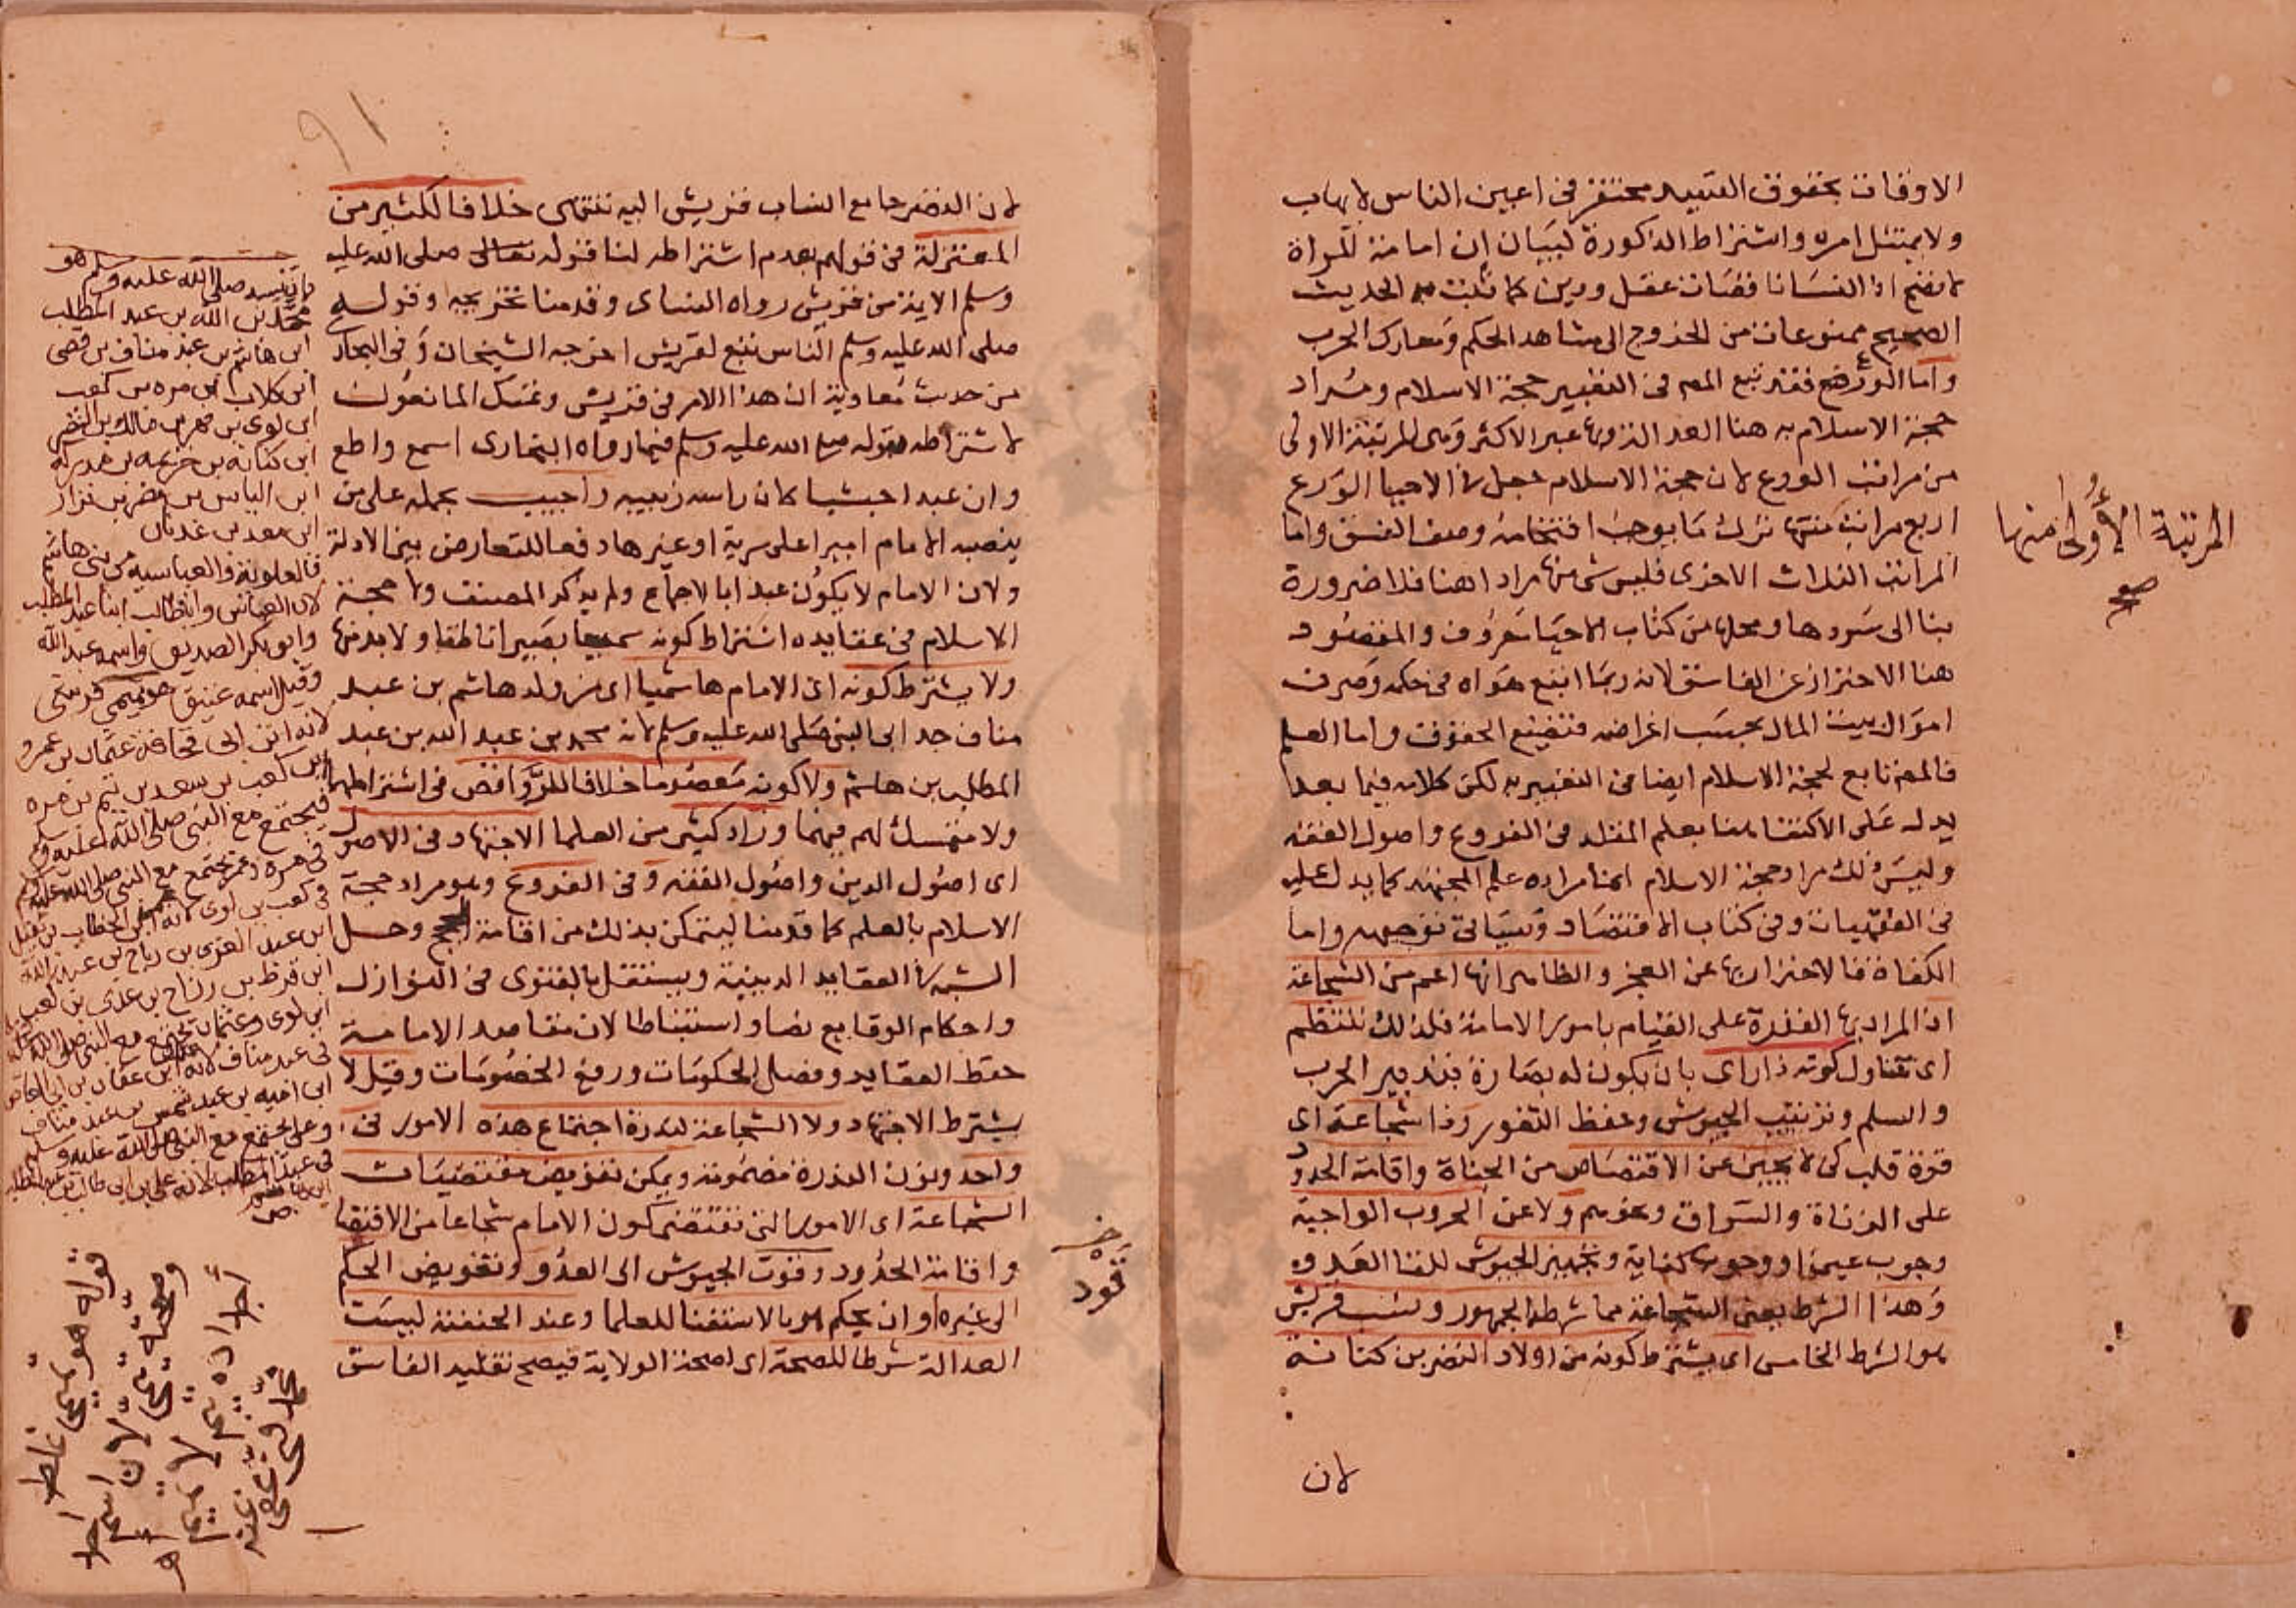 الاوقات بحقوق السيد محتقر فى اعين الناس لا يهاب
ولا يمتثل امره واشتراط الذكورة لبيان ان امامة المرأة
لا تصح اذ النسا ناقصات عقل ودين كما ثبت به الحديث
الصحيح ممنوعات من الخروج الى مشاهد الحكم ومعارك الحرب
واما الورع فقد تبع المص فى التعبير حجة الاسلام ومراد
حجة الاسلام به هنا العدالة وبها عبر الاكثر وهى المرتبة الاولى
من مراتب الورع لان حجة الاسلام جعل فى الاحيا الورع
اربع مراتب منها ترك ما يوجب اقتحامه وصف الفسق واما
المراتب الثلاث الاخرى فليس شى منها مرادا هنا فلا ضرورة
بنا الى سردها ومحلها من كتاب الاحيا معروف والمقصود
هنا الاحتراز عن الفاسق لانه ربما اتبع هواه فى حكمه وصرف
اموال بيت المال بحسب اغراضه فتضيع الحقوق واما العلم
فالمص تابع لحجة الاسلام ايضا فى التعبير به لكن كلامه فيما بعد
يدل على الاكتفا هنا بعلم المقلد فى الفروع واصول الفقه
وليس ذلك مراد حجة الاسلام انما مراده علم المجتهد كما يدل عليه
فى الفقهيات وفى كتاب الاقتصاد وسياتى توجيهه واما
الكفاة فالاحتراز بها عن العجز والظاهر انها اعم من الشجاعة
اذ المراد بها القدرة على القيام بامور الامامة فلذلك تنتظم
اى تتناول كونه ذا راى بان يكون له بصارة بتدبير الحرب
والسلم وترتيب الجيوش وحفظ الثغور وذا شجاعة اى
قوة قلب كى لا يجبن عن الاقتصاص من الجناة واقامة الحدود
على الزناة والسراق ونحوهم ولا عن الحروب الواجبة
وجوب عين او وجوب كفاية وتجهيز الجيوش للقا العدو
وهذا الشرط يعنى الشجاعة مما شرطه الجمهور ونسب قريش
هو الشرط الخامس اى يشترط كونه من اولاد النضر بن كنانة
لان
المرتبة الأولى منها
صح
٩١
لان النضر جامع انساب قريش اليه تنتهى خلافا لكثير من
المعتزلة فى قولهم بعدم اشتراطه لنا قوله تعالى صلى الله عليه
وسلم الايمة من قريش رواه النساى وقدمنا تخريجه وقوله
صلى الله عليه وسلم الناس تبع لقريش اخرجه الشيخان وفى البخارى
من حديث معاوية ان هذا الامر فى قريش وتمسك المانعون
لاشتراطه بقوله صلى الله عليه وسلم فيما رواه البخارى اسمع واطع
وان عبدا حبشيا كان راسه زبيبة واجيب بحمله على من
ينصبه الامام اميرا على سرية او غيرها دفعا للتعارض بين الادلة
ولان الامام لا يكون عبدا بالاجماع ولم يذكر المصنف ولا حجة
الاسلام فى عقايده اشتراط كونه سميعا بصيرا ناطقا ولا بد منها
ولا يشترط كونه اى الامام هاشميا اى من ولد هاشم بن عبد
مناف جد ابى النبى صلى الله عليه وسلم لانه محمد بن عبد الله بن عبد
المطلب بن هاشم ولا كونه معصوما خلافا للروافض فى اشتراطهما
ولا متمسك لهم فيهما وزاد كثير من العلما الاجتهاد فى الاصول
اى اصول الدين واصول الفقه وفى الفروع وهو مراد حجة
الاسلام بالعلم كما قدمنا ليتمكن بذلك من اقامة الحجج وحل
الشبه فى العقايد الدينية ويستقل بالفتوى فى النوازل
واحكام الوقايع نصا واستنباطا لان مقاصد الامامة
حفظ العقايد وفصل الحكومات ورفع الخصومات وقيل لا
يشترط الاجتهاد ولا الشجاعة لندرة اجتماع هذه الامور فى
واحد وتزن العذرة مضمونة ويمكن تفويض مقتضيات
الشجاعة اى الامور التى تقتضى كون الامام شجاعا من الاقتصا
واقامة الحدود وقوت الجيوش الى العدو وتفويض الحكم
الى غيره او ان يحكم هو بالاستفتا للعلما وعند الحنفية ليست
العدالة شرطا للصحة اى لصحة الولاية فيصح تقليد الفاسق
خ
قود
صلى الله عليه وسلم هو
محمد بن عبد الله بن عبد المطلب
ابن هاشم بن عبد مناف بن قصى
ابن كلاب ابن مره بن كعب
ابن لوى بن فهر بن مالك بن النضر
ابن كنانه بن خزيمه بن مدركه
ابن الياس بن مضر بن نزار
ابن معد بن عدنان
فالعلوية والعباسيه من بنى هاشم
لان العباس وابا طالب ابنا عبد المطلب
وابو بكر الصديق واسمه عبد الله
وقيل اسمه عتيق هو تيمى قرشى
لانه ابن ابى قحافة عثمان بن عمرو
ابن كعب بن سعد بن تيم بن مره
فيجتمع مع النبى صلى الله عليه وسلم
فى مره وعمر يجتمع مع النبى صلى الله عليه وسلم
فى كعب بن لوى لانه ابن الخطاب بن نفيل
ابن عبد العزى بن رباح بن عبد الله
ابن قرط بن رزاح بن عدى بن كعب
ابن لوى وعثمان يجتمع مع النبى صلى الله عليه
فى عبد مناف لانه ابن عفان بن ابى العاص
ابن اميه بن عبد شمس بن عبد مناف
وعلى يجتمع مع النبى صلى الله عليه وسلم
فى عبد المطلب لانه على بن ابى طالب بن عبد المطلب
قوله هو تيمى غلط
لان اسم احد
أجداده تيم لا